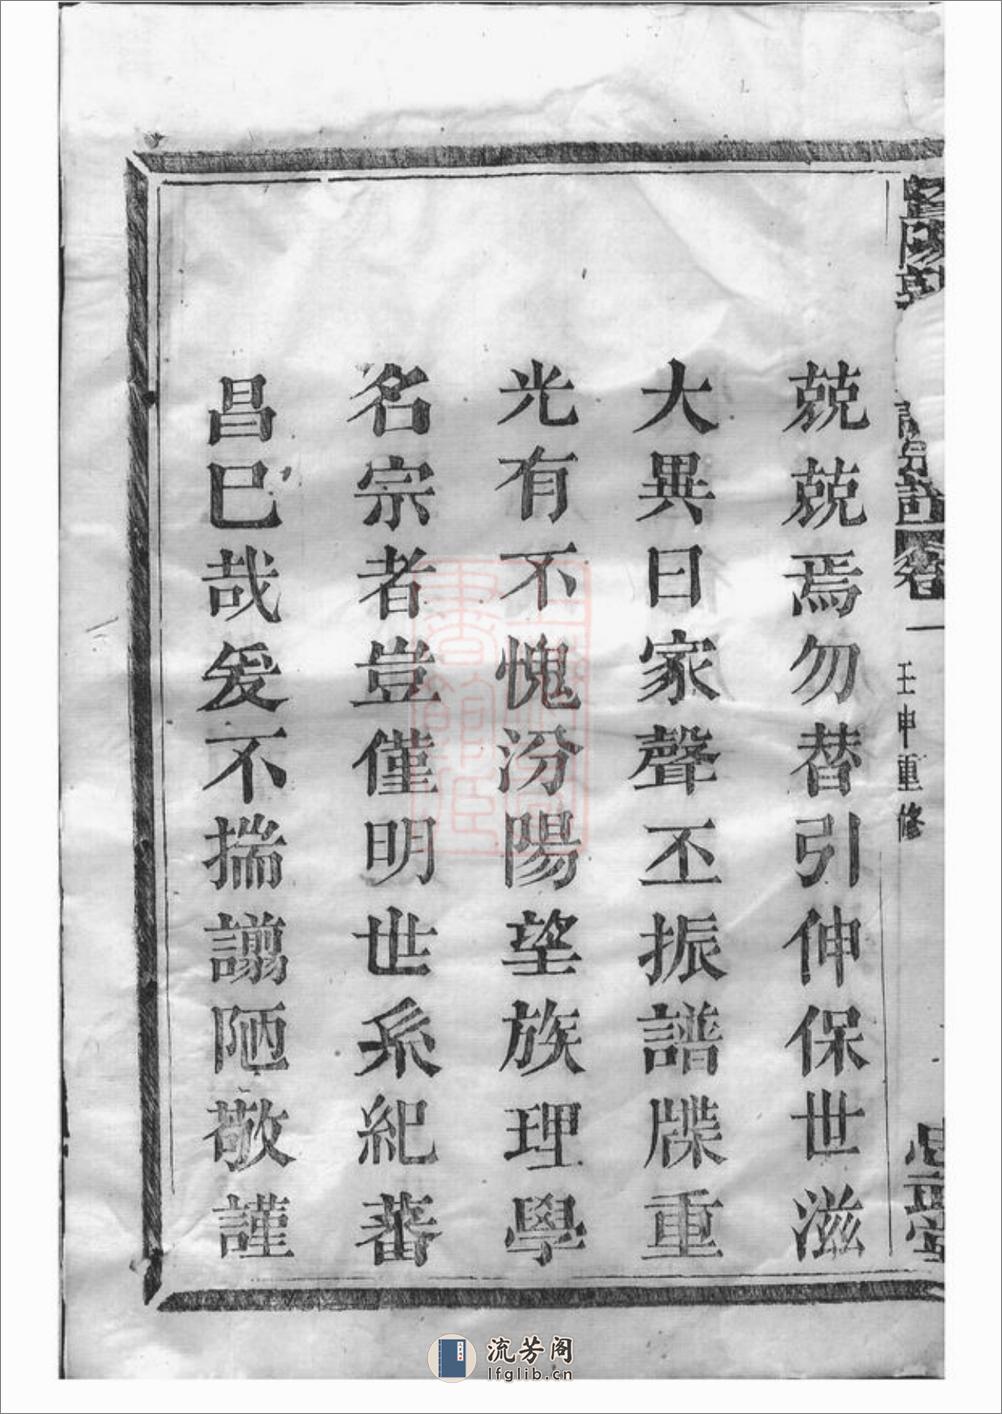 兢兢焉勿替引伸保世滋
大異日家聲丕振譜牒重
光有不愧汾陽望族理學
名宗者豈僅明世系紀蕃
昌巳哉爰不揣譾陋敬謹
宗譜
卷一
壬申重修
流芳阁
lfglib.cn